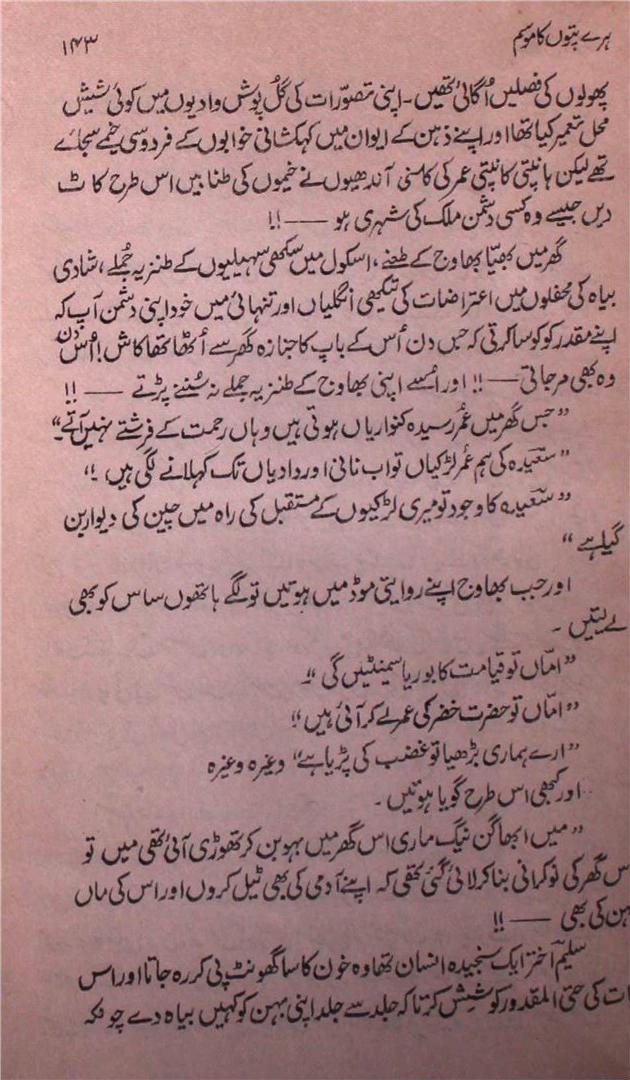 ہرے پتوں کا موسم
۱۴۳
پھولوں کی فصلیں اُگائی تھیں۔ اپنی تصوّرات کی گُل پوش وادیوں میں کوئی شیش
محل تعمیر کیا تھا اور اپنے ذہن کے ایوان میں کہکشانی خوابوں کے فردوسی خیمے سجائے
تھے لیکن ہانپتی کانپتی عمر کی کاسنی آندھیوں نے خیموں کی طنابیں اس طرح کاٹ
دیں جیسے وہ کسی دشمن ملک کی شہری ہو ——!!
گھر میں بھیّا بھاوج کے طعنے، اسکول میں سکھی سہیلیوں کے طنزیہ جُملے، شادی
بیاہ کی محفلوں میں اعتراضات کی تیکھی انگلیاں اور تنہائی میں خود اپنی دشمن آپ کہ
اپنے مقدر کو کوسا کرتی کہ جس دن اُس کے باپ کا جنازہ گھر سے اُٹھا تھا کاش! اُس دن
وہ بھی مر جاتی —!! اور اُسے اپنی بھاوج کے طنزیہ جملے نہ سُننے پڑتے ——!!
”جس گھر میں عُمر رسیدہ کنواریاں ہوتی ہیں وہاں رحمت کے فرشتے نہیں آتے۔“
”سعیدہ کی ہم عُمر لڑکیاں تو اب نانی اور دادیاں تک کہلانے لگی ہیں۔!“
”سعیدہ کا وجود تو میری لڑکیوں کے مستقبل کی راہ میں چین کی دیوار بن
گیا ہے“
اور جب بھاوج اپنے روایتی موڈ میں ہوتیں تو لگے ہاتھوں ساس کو بھی
لے لیتیں ۔
”امّاں تو قیامت کا بوریا سمیٹیں گی“۔
”امّاں تو حضرت خضر کی عمر لے کر آئی ہیں“!
”ارے ہماری بڑھیا تو غضب کی پڑیا ہے“ وغیرہ وغیرہ
اور کبھی اس طرح گویا ہوتیں ۔
”میں ابھاگن نیگ ماری اس گھر میں بہو بن کر تھوڑی آئی تھی میں تو
اس گھر کی نوکرانی بنا کر لائی گئی تھی کہ اپنے آدمی کی بھی ٹہل کروں اور اس کی ماں
بہن کی بھی ——!!
سلیم اختر ایک سنجیدہ انسان تھا وہ خون کا سا گھونٹ پی کر رہ جاتا اور اس
بات کی حتی المقدور کوشش کرتا کہ جلد سے جلد اپنی بہن کو کہیں بیاہ دے چونکہ